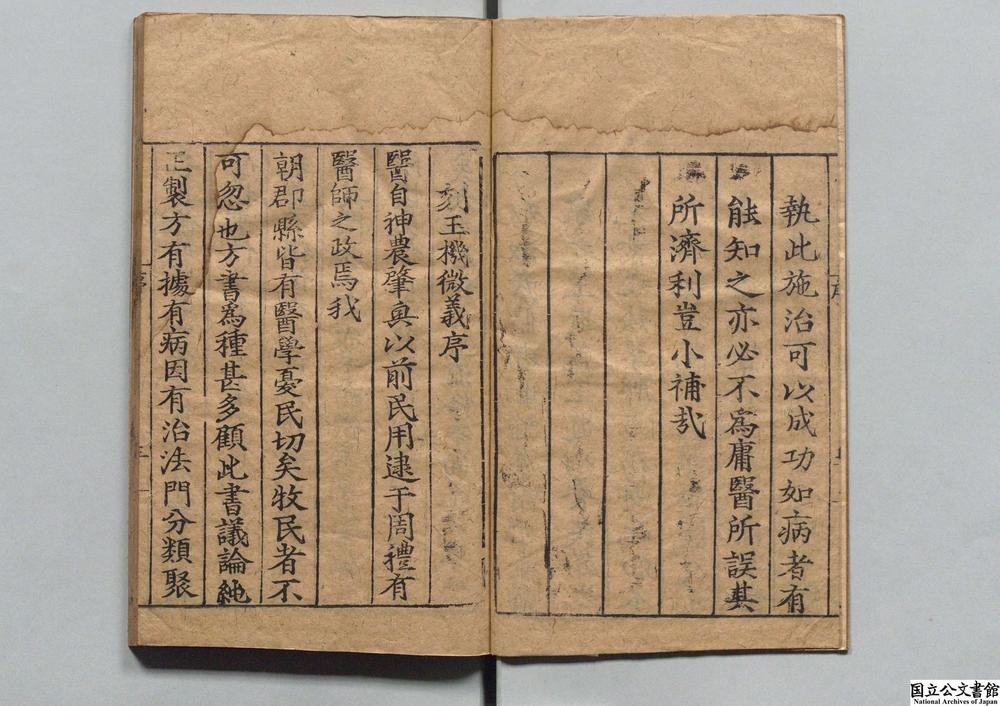 執此施治可以成功如病者有
能知之亦必不為庸醫所誤其
所濟利豈小補哉
刻玉機微義序
醫自神農肇興以前民用逮于周禮有
醫師之政焉我
朝郡縣皆有醫學憂民切矣牧民者不
可忽也方書為種甚多顧此書議論純
正製方有據有病因有治法門分類聚
国立公文書館
National Archives of Japan